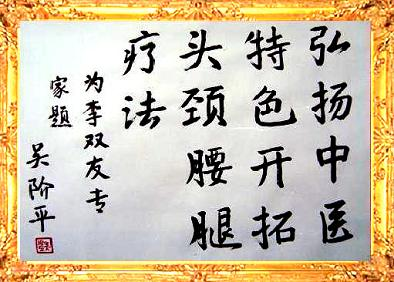 弘扬中医
特色开拓
头颈腰腿
疗法
为李双友专
家题
吴阶平